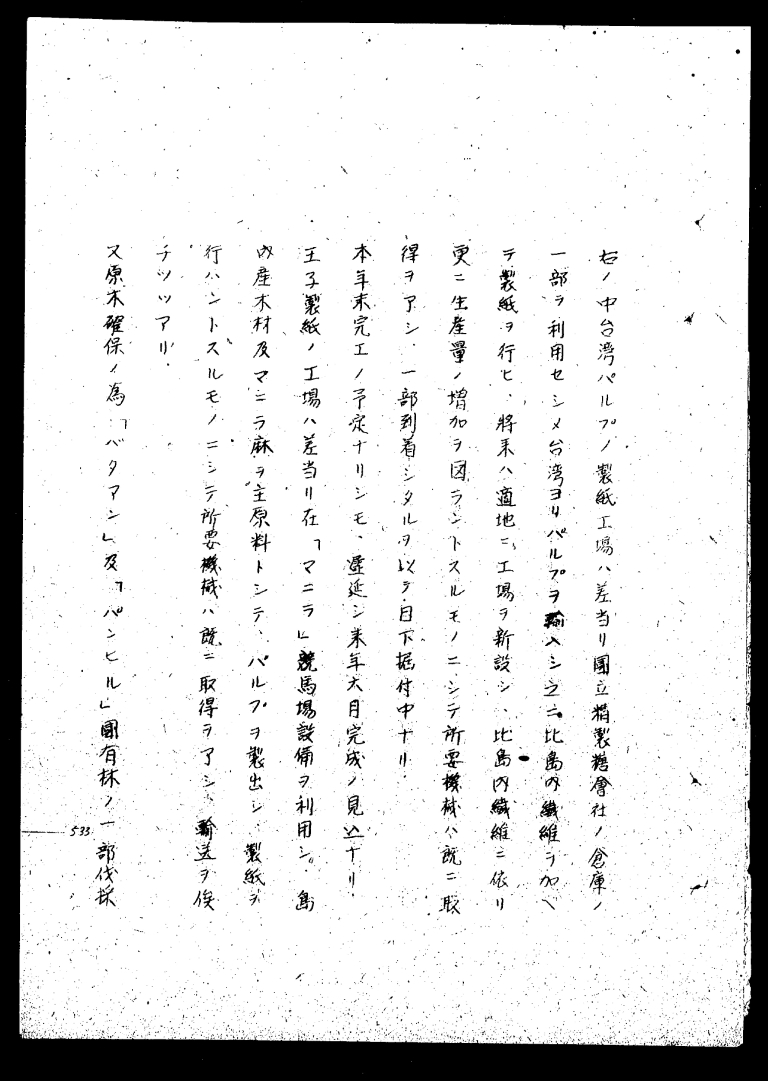 右ノ中台湾パルプノ製紙工場ハ差当リ國立精製糖會社ノ倉庫ノ
一部ヲ利用セシメ台湾ヨリパルプヲ輸入シ之ニ比島内繊維ヲ加ヘ
テ製紙ヲ行ヒ、將来ハ適地ニ工場ヲ新設シ、比島内繊維ニ依リ
更ニ生産量ノ増加ヲ図ラントスルモノニシテ所要機械ハ既ニ取
得ヲアシ、一部到着シタルヲ以テ目下据付中ナリ.
本年末完工ノ予定ナリシモ、遅延シ来年六月完成ノ見込ナリ.
王子製紙ノ工場ハ差当リ在「マニラ」競馬場設備ヲ利用シ、島
内産木材及マニラ麻ヲ主原料トシテ、パルプヲ製出シ、製紙ヲ
行ハントスルモノニシテ所要機械ハ既ニ取得ヲアシ、輸送ヲ俟
チツツアリ.
又原木確保ノ為、「バタアン」及「パンヒル」國有林ノ一部伐採
533